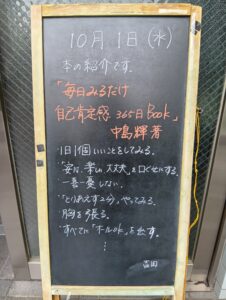 10月1日(水)
本の紹介です。
「毎日みるだけ
自己肯定感 365日Book」
中島輝著
・1日1個いいことをしてみる。
大丈夫」を口ぐせにする。
一喜一憂しない。
・「とりあえず2分」やってみる。
胸を張る。
すべてに を出す。
⋮
吉田